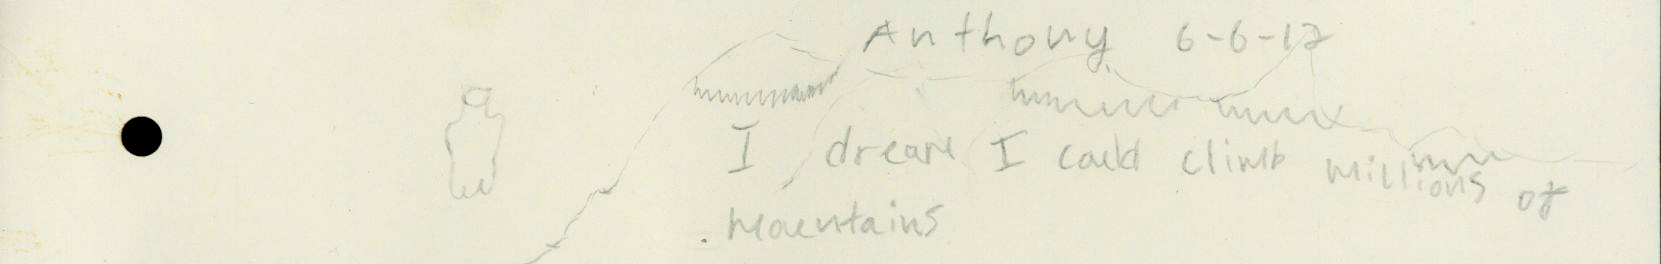 Anthony 6-6-17
I dream I could climb millions of
mountains